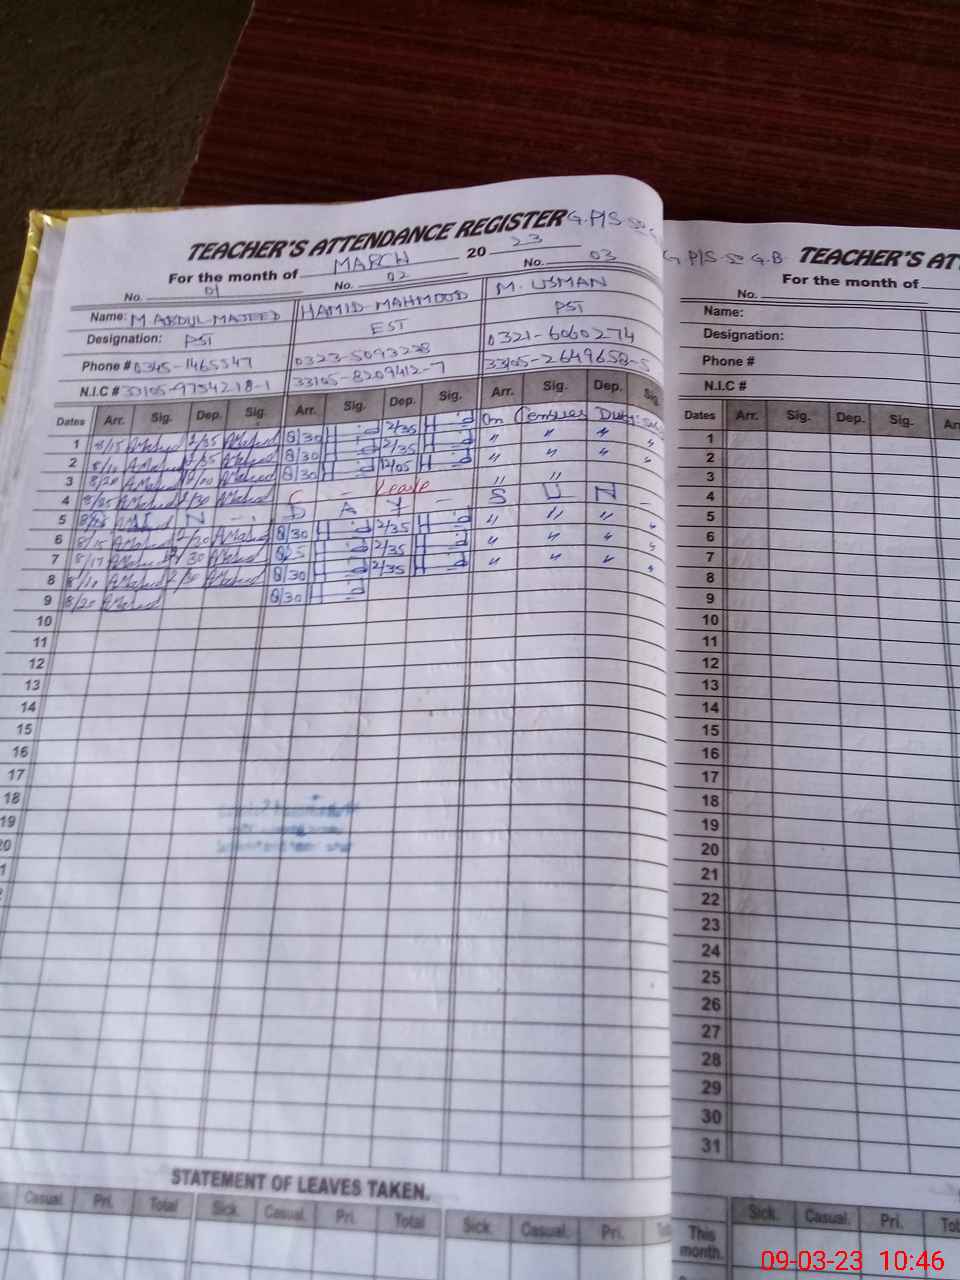 TEACHER'S ATTENDANCE REGISTER G.P/S
For the month of MARCH 20 23
No. 01 No. 02 No. 03
Name: M. ABDUL-MAJEED HAMID-MAHMOOD M. USMAN
Designation: PST EST PST
Phone # 0345-1465347 0323-5093228 0321-6060274
N.I.C # 33105-9754218-1 33105-8209412-7 33105-2649658-5
Dates Arr. Sig. Dep. Sig. Arr. Sig. Dep. Sig. Arr. Sig. Dep. Sig.
1 8/15 2/35 8/30 2/35 On Census Duty
2 8/10 2/35 8/30 2/35 " " " "
3 8/20 12/00 8/30 12/05 " " " "
4 8/25 1/30 C - Leave - " "
5 S U N - D A Y - S U N -
6 8/15 2/20 8/30 2/35 " " " "
7 8/17 2/30 8/25 2/35 " " " "
8 8/10 2/30 8/30 2/35 " " " "
9 8/20 8/30
10
11
12
13
14
15
16
17
18
19
20
STATEMENT OF LEAVES TAKEN.
Casual. Pri. Total Sick. Casual. Pri. Total Sick. Casual. Pri.
G P/S G.B. TEACHER'S AT
For the month of
No.
Name:
Designation:
Phone #
N.I.C #
Dates Arr. Sig. Dep. Sig.
1
2
3
4
5
6
7
8
9
10
11
12
13
14
15
16
17
18
19
20
21
22
23
24
25
26
27
28
29
30
31
Sick. Casual. Pri.
This month.
09-03-23 10:46